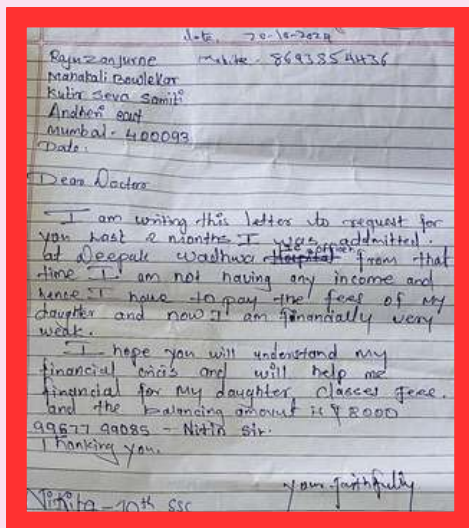 date. 20-10-2024
Raju Zanjurne Mobile - 8693854436
Mahakali Bowlekar
Kutir Seva Samiti
Andheri east
Mumbai - 400093
Date:
Dear Doctor
I am writing this letter to request for
you Last 2 months I was addmitted.
at Deepak Wadhwa officer from that
time I am not having any income and
hence I have to pay the fees of my
daughter and now I am financially very
weak.
I hope you will understand my
financial crisis and will help me
financial for my daughter, classes feee.
and the balancing amount is ₹ 8000
99677 99085 - Nitin Sir.
Thanking you.
your faithfully
Nikita - 10th SSC